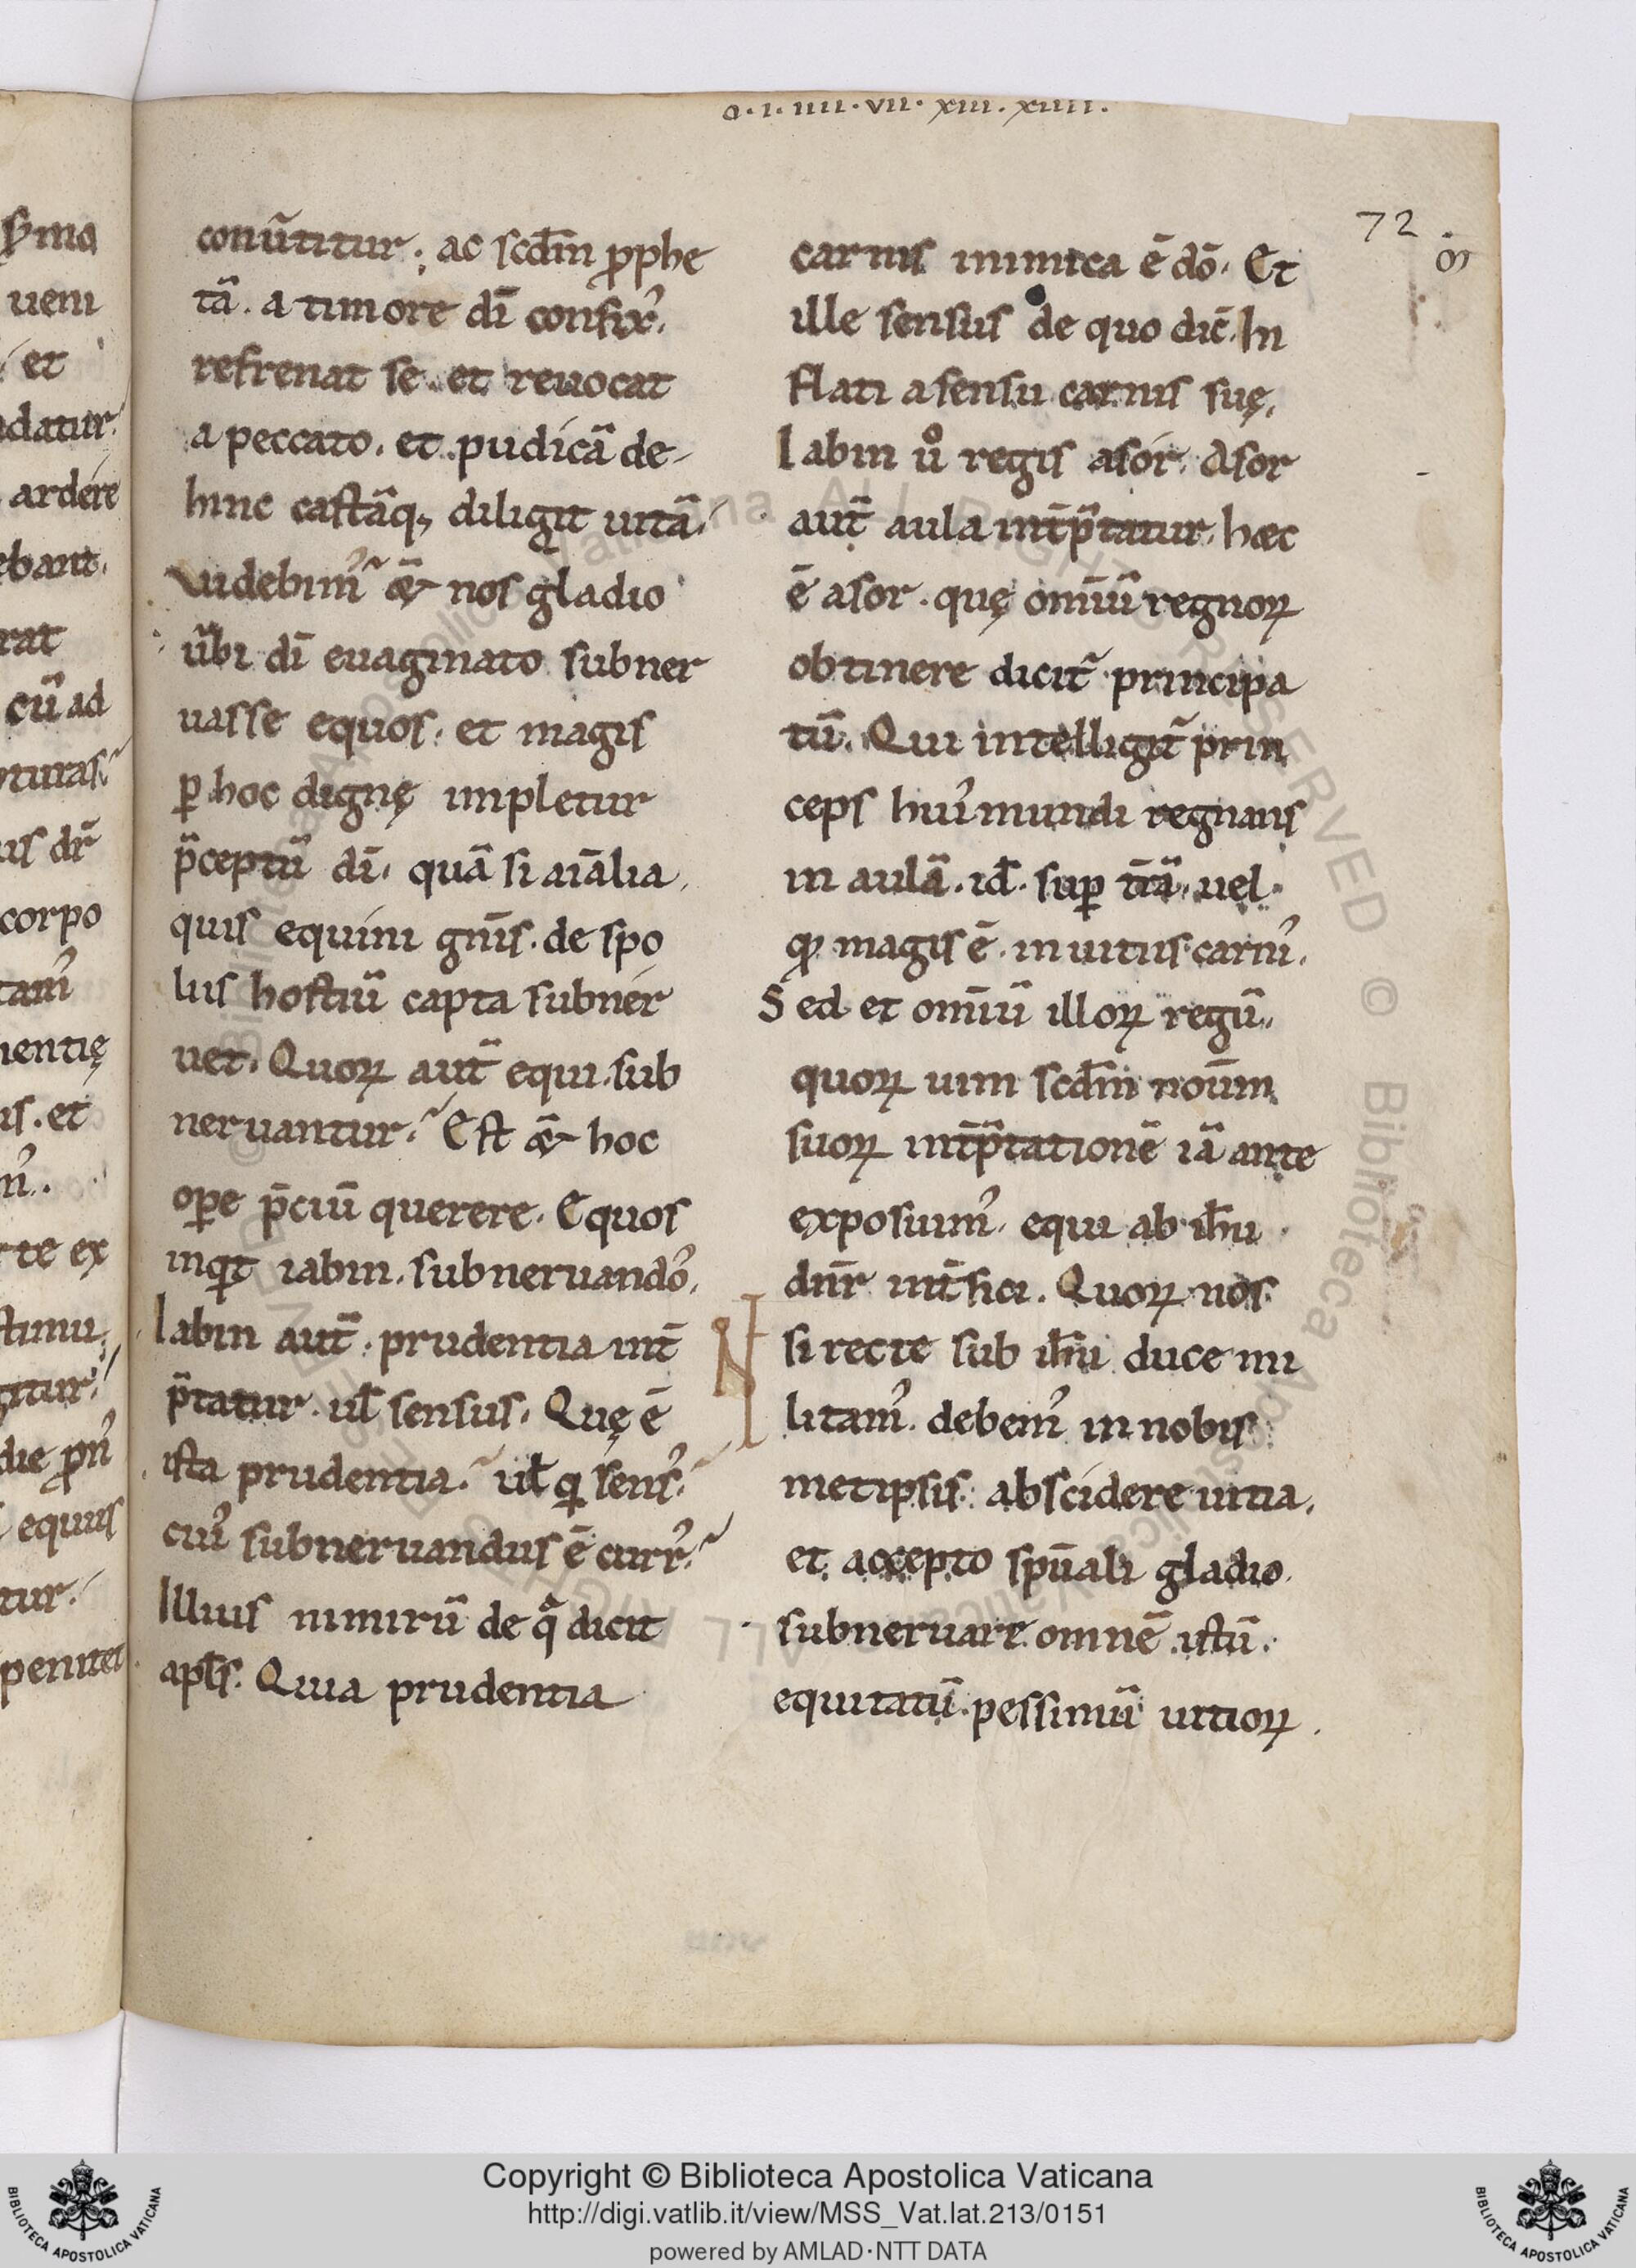 a·i·iiii·vii·xiii·xiiii·
72
conũtitur; ac scđm ꝓphe
tã. a timore dī confixꝰ.
refrenat se. et reuocat
a peccato. et pudicã de-
hinc castãqꝫ diligit uitã.
Videbimꝰ & nos gladio
ũbi dī euaginato subner
uasse equos. et magis
ꝑ hoc dignę impletur
p̃ceptũ dī. quã si aīalia
quis equini gn̄is. de spo
liis hostiũ capta subner
uet. Quoꝝ aut̃ equi sub
neruantur. Est & hoc
oꝑe p̄ciũ querere. Equos
inqt iabin. subneruandoꝰ.
Iabin aut̃. prudentia int̄
p̃tatur. ul̄ sensus. Quę ē
ista prudentia. ul̄ qi sensꝰ.
cuiꝰ subneruandus ē currꝰ.
Illius nimirũ de qͣ dicit
apl̄s. Quia prudentia
carnis inimica ē dō. Et
ille sensus de quo dic̄. In
flati a sensu carnis suę.
Iabin uͦ regis asor. Asor
aut̃ aula int̄p̃tatur. hæc
ē asor. quę om̄iũ regnoꝝ
obtinere dicit̃ principa
tũ. Qui intelligit̃ prin
ceps huiꝰ mundi regnans
in aulã. id̄. suꝑ tr̄ã. uel
qđ magis ē. in uitiis carnꝰ.
Sed et om̄iũ illoꝝ regũ.
quoꝝ uim scđm noīm
suoꝝ int̄p̃tationē iã ante
exposuimꝰ. equi ab ih̄u
dn̄r int̄fici. Quoꝝ nos
si recte sub ih̄u duce mi
litamꝰ. debemꝰ in nobis
metipsis abscidere uitia.
et accepto sp̄uali gladio
subneruare omnē istũ
equitatũ pessimũ uitioꝝ.
Copyright © Biblioteca Apostolica Vaticana
http://digi.vatlib.it/view/MSS_Vat.lat.213/0151
powered by AMLAD·NTT DATA
BIBLIOTECA APOSTOLICA VATICANA
BIBLIOTECA APOSTOLICA VATICANA